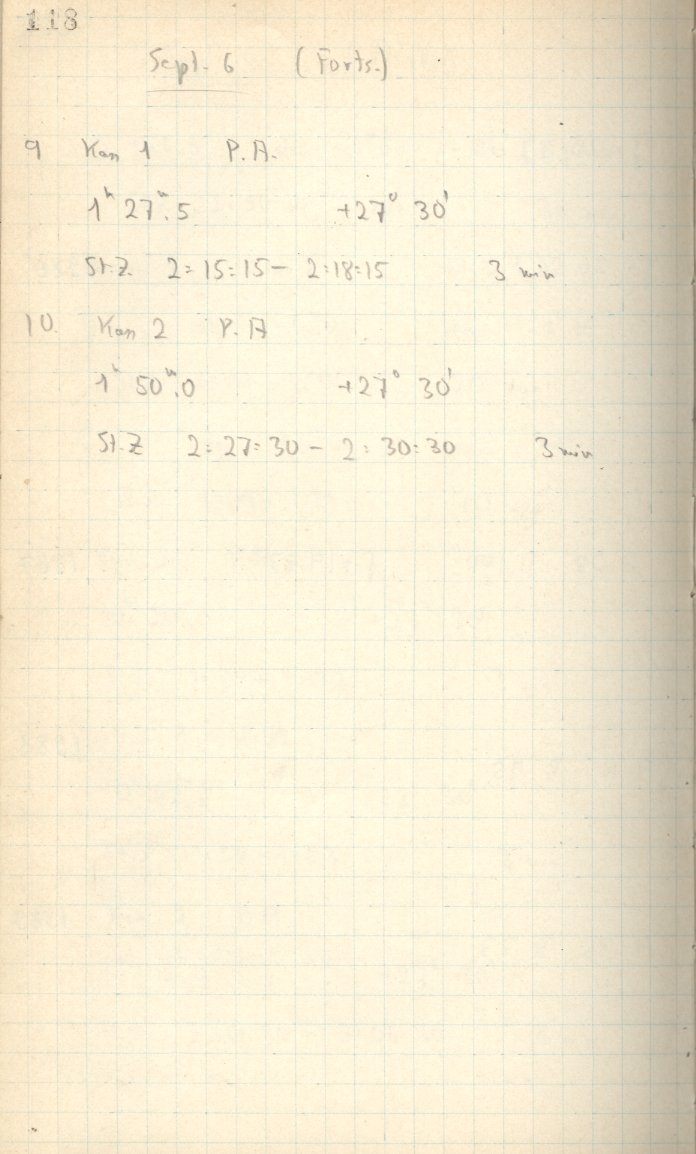 118
Sept. 6 (Forts.)
9 Kas 1 P.A.
1ʰ 27ᵐ.5 +27° 30'
St.Z. 2:15:15 - 2:18:15 3 min
10. Kas 2 P.A
1ʰ 50ᵐ.0 +27° 30'
St.Z 2:27:30 - 2:30:30 3 min